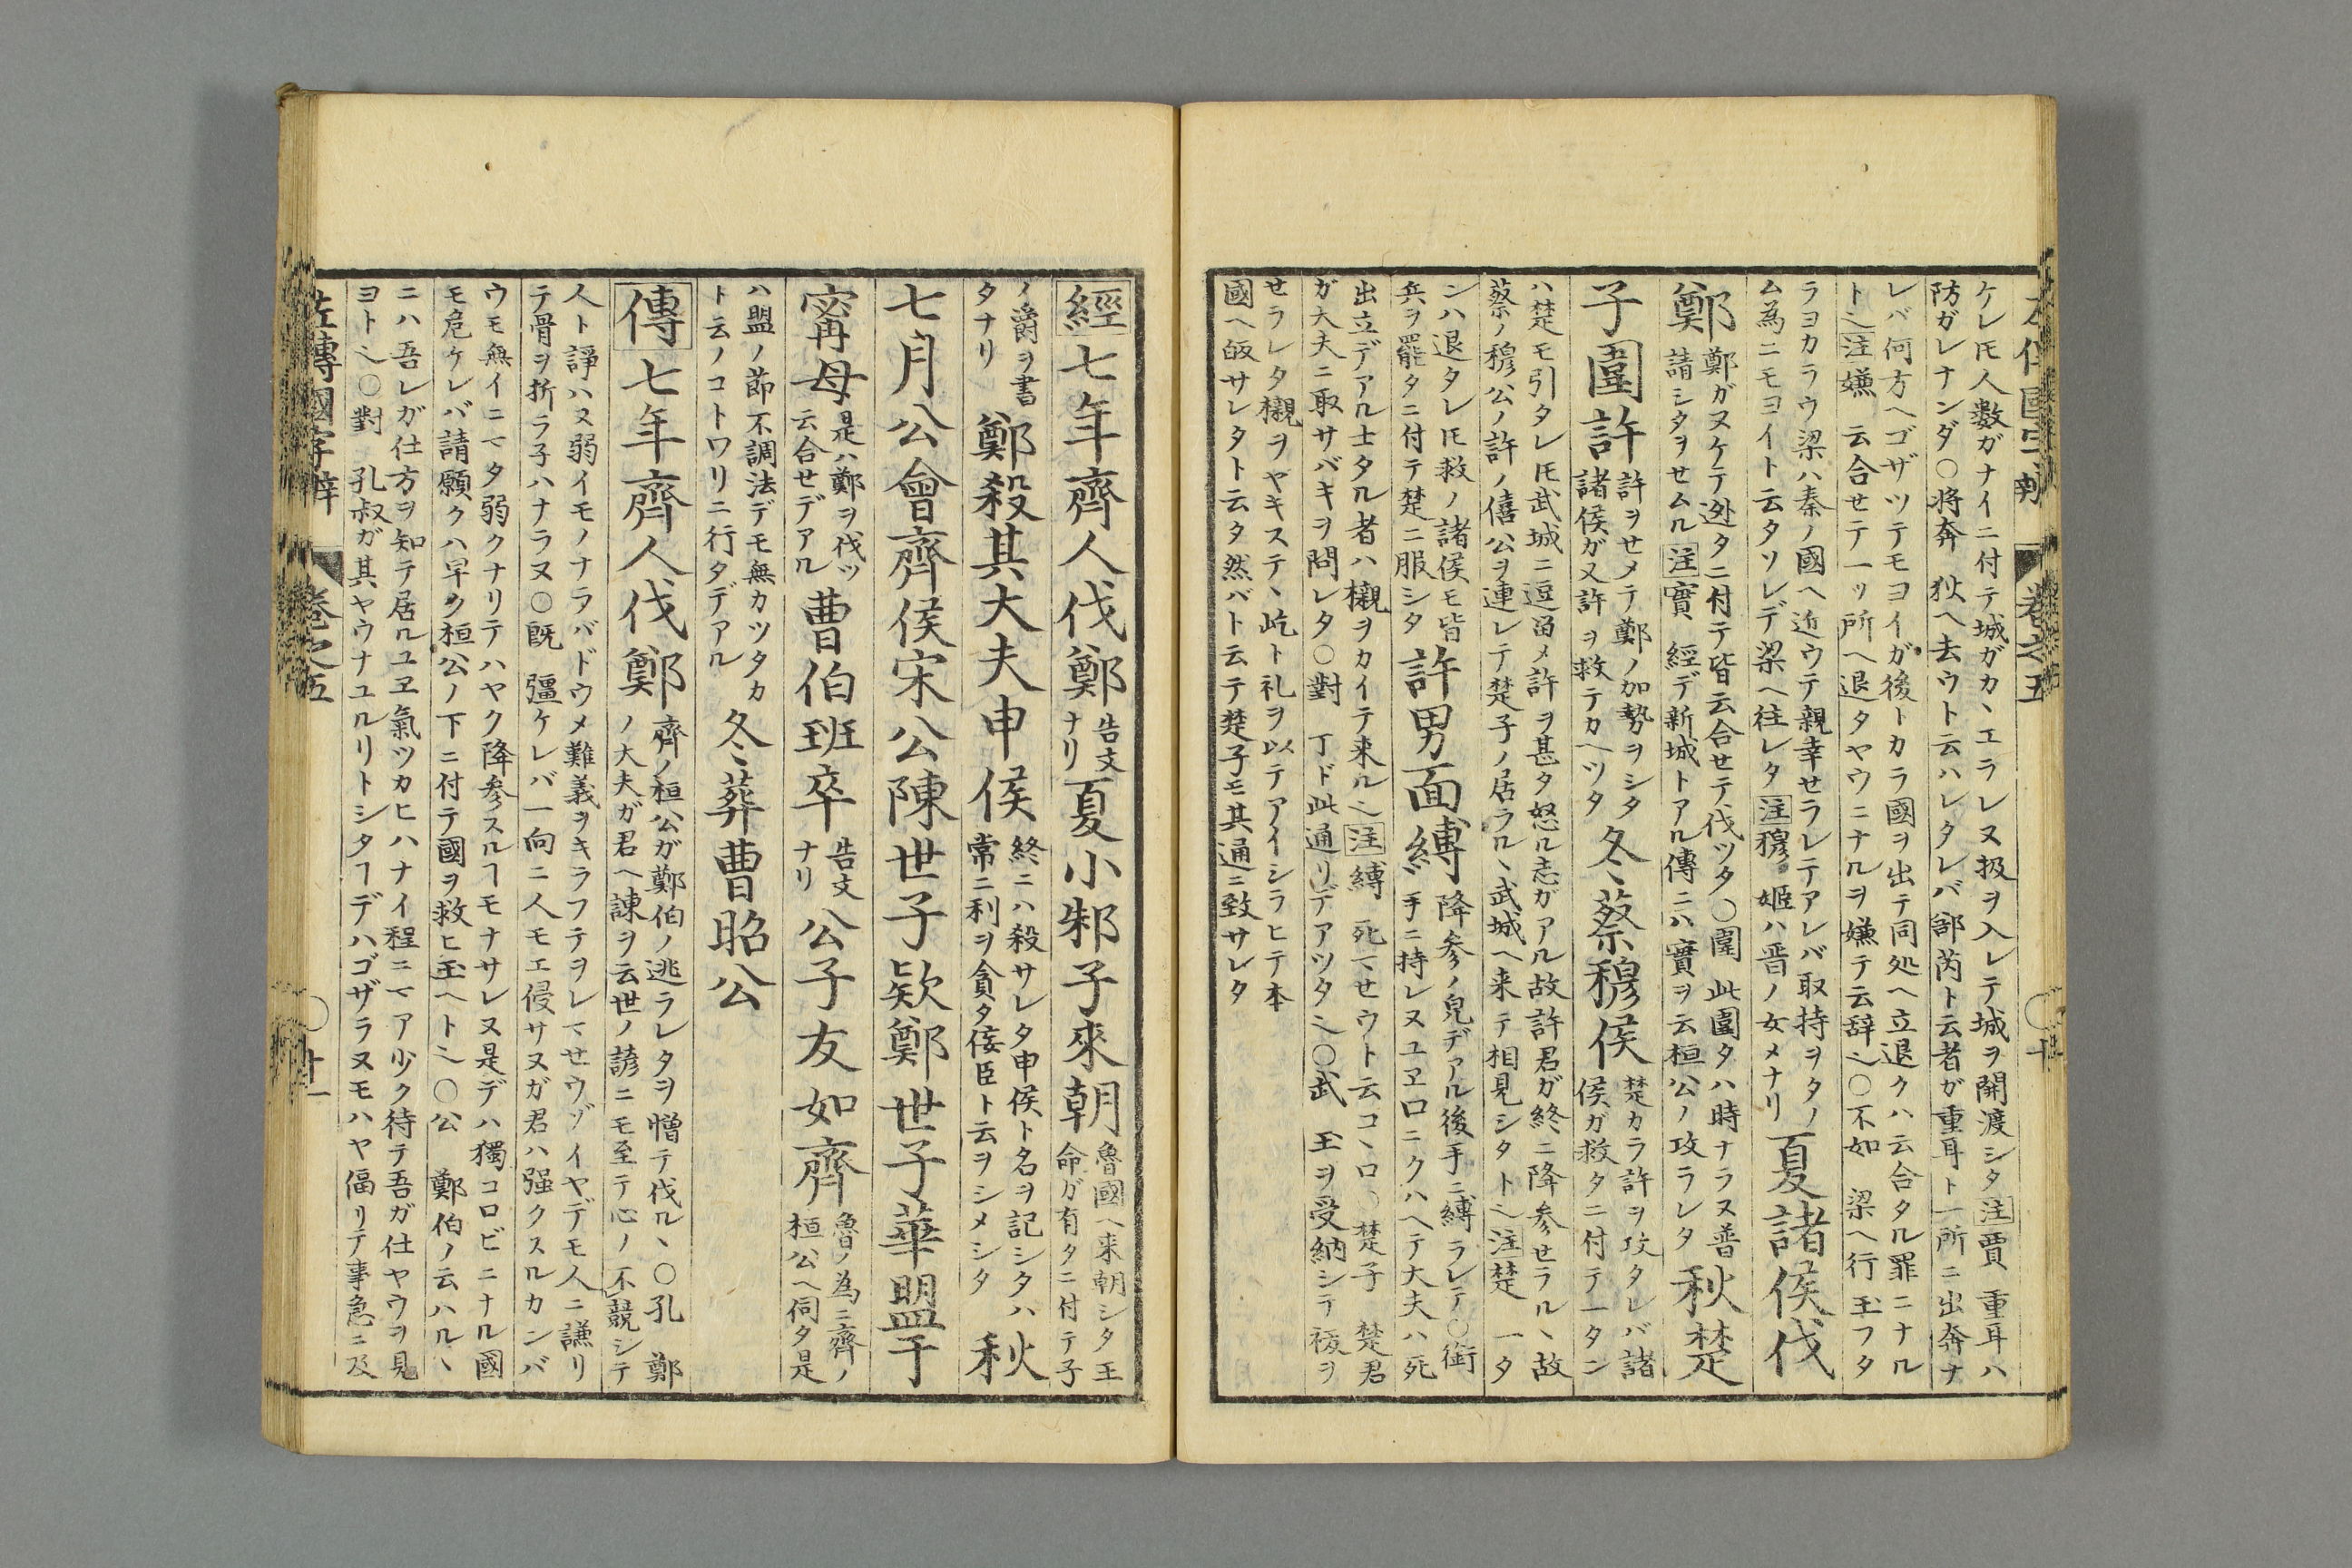 左傳國字辯　卷之五　○十
ケレ𪜈人数ガナイニ付テ城ガカヽエラレヌ扱ヲ入レテ城ヲ開渡シタ注賈　重耳ハ
防ガレナンダ○将奔　狄ヘ去ウト云ハレタレバ郤芮ト云者ガ重耳ト一所ニ出奔ナ
レバ何方ヘゴザツテモヨイガ後トカラ國ヲ出テ同処ヘ立退クハ云合タル罪ニナル
ト〻注嫌　云合セテ一ッ所ヘ退タヤウニナルヲ嫌テ云辞〻○不如　梁ヘ行玉フタ
ラヨカラウ梁ハ秦ノ國ヘ近ウテ親幸セラレテアレバ取持ヲタノ
ム為ニモヨイト云タソレデ梁ヘ往レタ注穆　姫ハ晋ノ女メナリ
夏諸侯伐
鄭
鄭ガヌケテ迯タニ付テ皆云合セテ伐ツタ○圍　此圍タハ時ナラヌ普
請シタヲセムル注實　經デ新城トアル傳ニハ實ヲ云桓公ノ攻ラレタ
秋楚
子圍許
許ヲセメテ鄭ノ加勢ヲシタ
諸侯ガ又許ヲ救テカヘツタ
冬蔡穆侯
楚カラ許ヲ攻タレバ諸
侯ガ救タニ付テ一タン
ハ楚モ引タレ𪜈武城ニ逗畄メ許ヲ甚タ怒ル志ガアル故許君ガ終ニ降参セラルヽ故
蔡ノ穆公ノ許ノ僖公ヲ連レテ楚子ノ居ラルヽ武城ヘ来テ相見シタト〻注楚　一タ
ンハ退タレ𪜈救ノ諸侯モ皆
兵ヲ罷タニ付テ楚ニ服シタ
許男面縛
降参ノ皃デアル後手ニ縛ラレテ○銜
手ニ持レヌユヱ口ニクハヘテ大夫ハ死
出立デアル士タル者ハ櫬ヲカイテ来ル〻注縛　死マセウト云コヽロ○楚子　楚君
ガ大夫ニ取サバキヲ問レタ○對　丁ド此通リデアツタ〻○武　王ヲ受納シテ祓ヲ
セラレタ櫬ヲヤキステヽ屹ト礼ヲ以テアイシラヒテ本
國ヘ皈サレタト云タ然バト云テ楚子モ其通ニ致サレタ
經七年齊人伐鄭
告文
ナリ
夏小邾子來朝
魯國ヘ来朝シタ王
命ガ有タニ付テ子
ノ爵ヲ書
タナリ
鄭殺其大夫申侯
終ニハ殺サレタ申侯ト名ヲ記シタハ
常ニ利ヲ貪タ侫臣ト云ヲシメシタ
秋
七月公會齊侯宋公陳世子款鄭世子華盟于
甯母
是ハ鄭ヲ伐ツ
云合セデアル
曹伯班卒
告文
ナリ
公子友如齊
魯ノ為ニ齊ノ
桓公ヘ伺タ是
ハ盟ノ節不調法デモ無カツタカ
ト云ノコトワリニ行タデアル
冬葬曹昭公
傳七年齊人伐鄭
齊ノ桓公ガ鄭伯ノ逃ラレタヲ憎テ伐ルヽ○孔　鄭
ノ大夫ガ君ヘ諌ヲ云世ノ諺ニモ至テ心ノ不競シテ
人ト諍ハヌ弱イモノナラバドウメ難義ヲキラフテヲレマセウゾイヤデモ人ニ謙リ
テ骨ヲ折ラ子ハナラヌ○既　彊ケレバ一向ニ人モエ侵サヌガ君ハ强クスルカンバ
ウモ無イニマタ弱クナリテハヤク降参スルヿモナサレヌ是デハ獨コロビニナル國
モ危ケレバ請願クハ早ク桓公ノ下ニ付テ國ヲ救ヒ玉ヘト〻○公　鄭伯ノ云ハルヽ
ニハ吾レガ仕方ヲ知テ居ルユヱ氣ツカヒハナイ程ニマア少ク待テ吾ガ仕ヤウヲ見
ヨト〻○對　孔叔ガ其ヤウナユルリトシタヿデハゴザラヌモハヤ偪リテ事急ニ及
左傳國字辯　卷之五　○十一